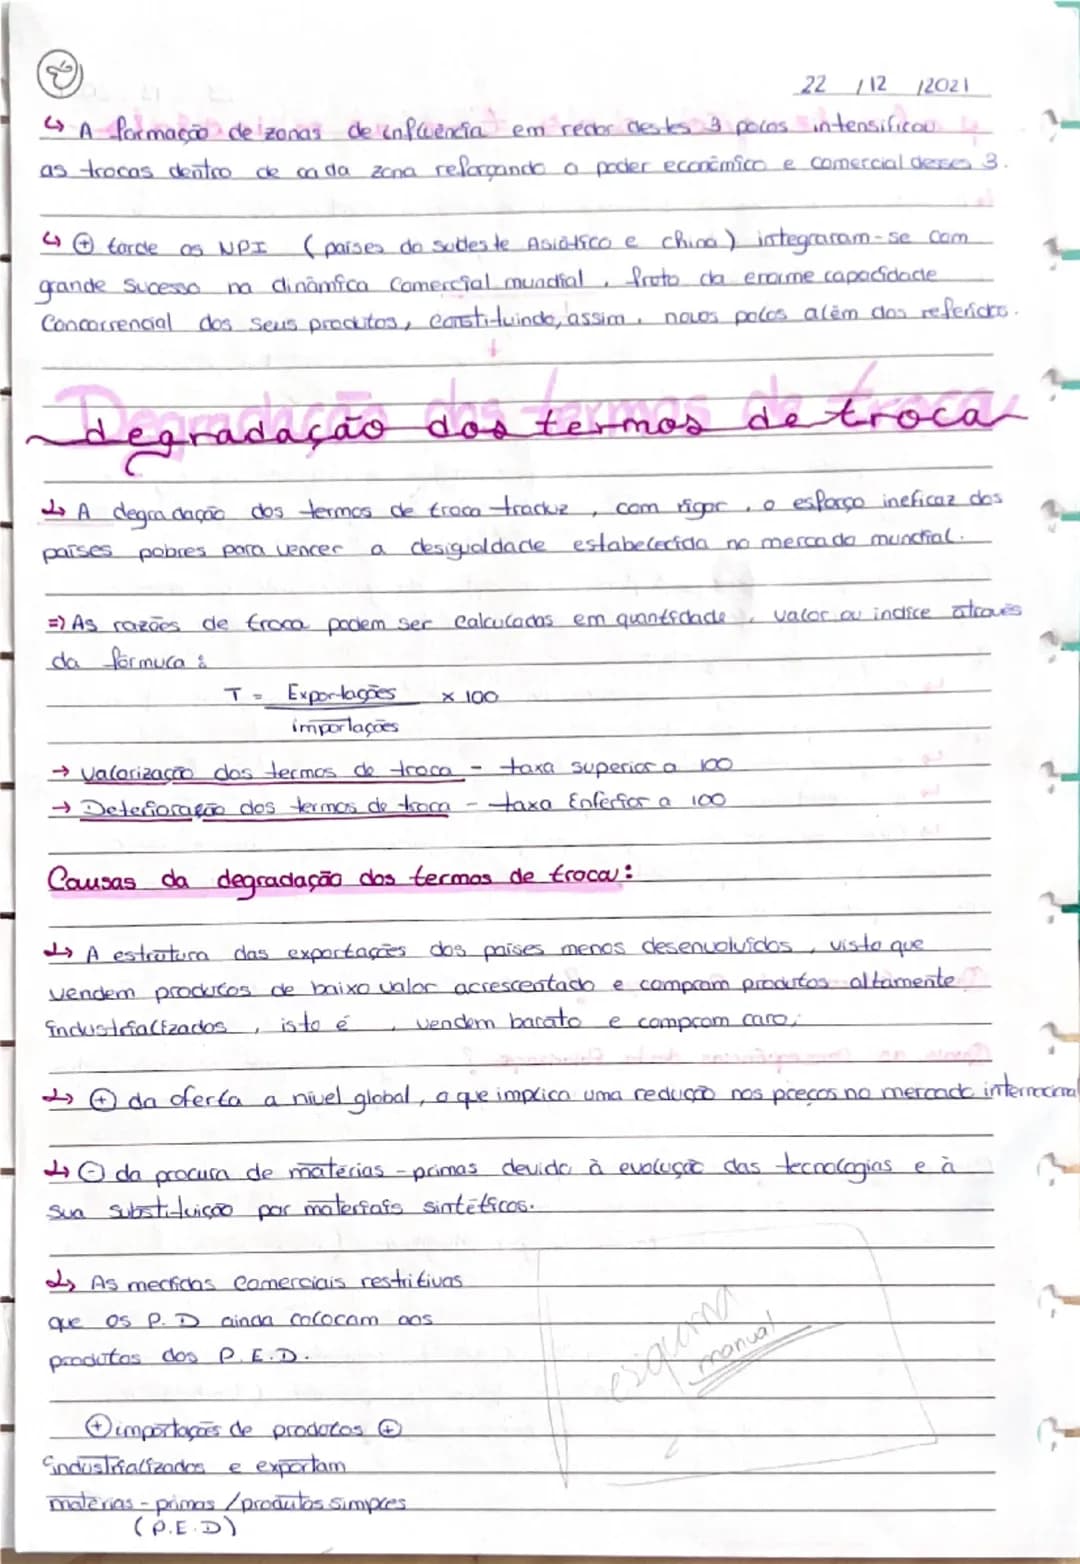 22 / 12 / 2021
↳ A formação de zonas de influência em redor destes 3 polos intensificou
as trocas dentro de cada zona reforçando o poder económico e comercial desses 3.
↳ ⊕ tarde os NPI (países do sudeste Asiático e china) integraram-se com
grande sucesso na dinâmica comercial mundial, fruto da enorme capacidade
Concorrencial dos seus produtos, constituindo, assim, novos polos além dos referidos.
degradação dos termos de troca
↳ A degradação dos termos de troca traduz, com rigor, o esforço ineficaz dos
países pobres para vencer a desigualdade estabelecida no mercado mundial.
=) As razões de troca podem ser calculadas em quantidade, valor ou indice através
da fórmula:
T = Exportações x 100
importações
→ Valorização dos termos de troca - taxa superior a 100
→ Deterioração dos termos de troca - taxa inferior a 100
Causas da degradação dos termos de troca:
↳ A estrutura das exportações dos países menos desenvolvidos, visto que
vendem produtos de baixo valor acrescentado e compram produtos altamente
industrializados, isto é, vendem barato e compram caro;
↳ ⊕ da oferta a nível global, o que implica uma redução nos preços no mercado internacional
↳ ⊖ da procura de matérias-primas devido à evolução das tecnologias e à
sua substituição por materiais sintéticos.
↳ As medidas comerciais restritivas
que os P.D ainda colocam aos
produtos dos P.E.D.
esquema
manual
⊕ importações de produtos ⊕
industrializados e exportam
matérias-primas / produtos simples
(P.E.D)